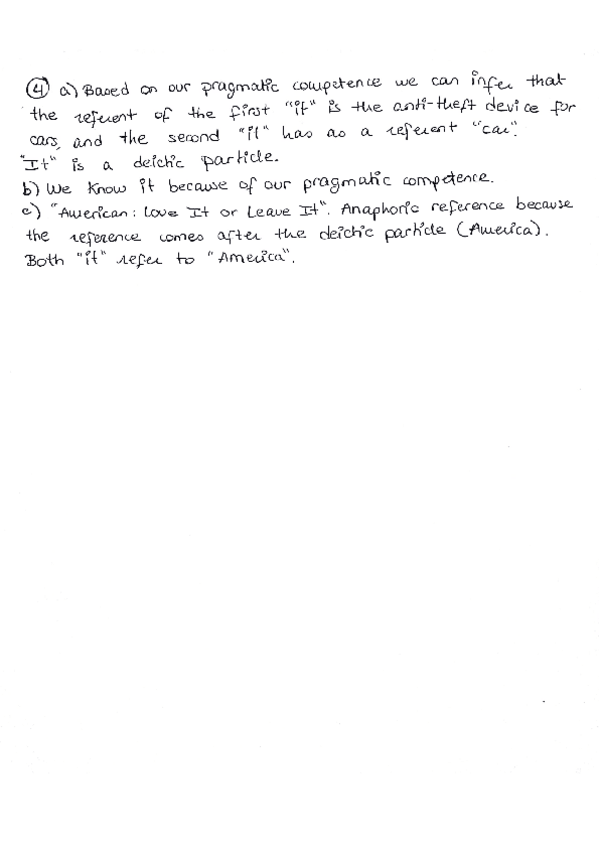 ④ a) Based on our pragmatic competence we can infer that
the referent of the first "it" is the anti-theft device for
cars, and the second "it" has as a referent "car".
"It" is a deictic particle.
b) We know it because of our pragmatic competence.
c) "American: Love It or Leave It". Anaphoric reference because
the reference comes after the deictic particle (America).
Both "it" refer to "America".